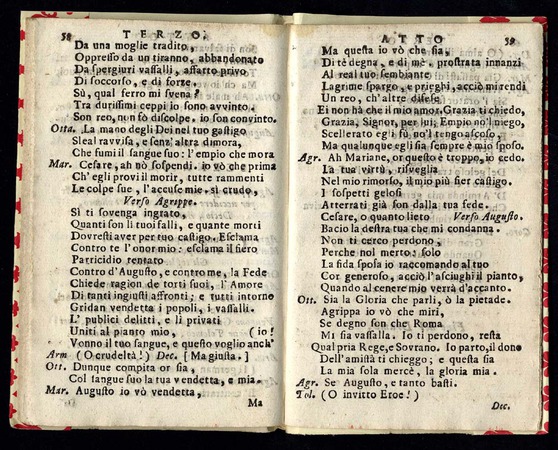 58 TERZO.
Da una moglie tradito,
Oppresso da un tiranno, abbandonato
Da spergiuri vassalli, affatto privo
Di soccorso, e di forze.
Sù, qual ferro mi svena?
Tra durissimi ceppi io sono avvinto.
Son reo, non fò discolpe. io son convinto.
Otta. La mano degli Dei nel tuo gastigo
Sleal ravvisa, e senz'altra dimora,
Che fumi il sangue suo: l'empio che mora
Mar. Cesare, ah nò sospendi. io vò che prima
Ch'egli provi il morir, tutte rammenti
Le colpe sue, l'accuse mie. sì crudo,
Verso Agrippe.
Sì ti sovenga ingrato,
Quanti son li tuoi falli, e quante morti
Dovresti aver per tuo castigo. Esclama
Contro te l'onor mio: esclama il fiero
Patricidio tentato
Contro d'Augusto, e contro me, la Fede
Chiede ragion de torti suoi, l'Amore
Di tanti ingiusti affronti; e tutti intorno
Gridan vendetta i popoli, i vassalli.
L'publici delitti, e li privati
Uniti al pianto mio, (io!
Vonno il tuo sangue, e questo voglio anch'
Arm (O crudeltà!) Dec. [Ma giusta.]
Ott. Dunque compita or sia,
Col sangue suo la tua vendetta, e mia.
Mar. Augusto io vò vendetta,
Ma
ATTO 59
Ma questa io vò che sia,
Di tè degna, e di mè. prostrata innanzi
Al real tuo sembiante
Lagrime spargo, e prieghi, acciò mi rendi
Un reo, ch'altre difese
Ei non hà che il mio amor. Grazia ti chiedo,
Grazia, Signor, per lui; Empio no'l niego,
Scellerato egli fù, no'l tengo ascoso,
Ma qualunque egli sia sempre è mio sposo.
Agr. Ah Mariane, or questo è troppo, io cedo.
La tua virtù, risveglia
Nel mio rimorso, il mio più fier castigo.
I sospetti gelosi
Atterrati già son dalla tua fede.
Cesare, o quanto lieto Verso Augusto.
Bacio la destra tua che mi condanna.
Non ti cerco perdono,
Perche nol merto: solo
La fida sposa io raccomando al tuo
Cor generoso, acciò l'asciughi il pianto,
Quando al cenere mio verrà d'accanto.
Ott. Sia la Gloria che parli, ò la pietade.
Agrippa io vò che miri,
Se degno son che Roma
Mi sia vassalla. Io ti perdono, resta
Qual pria Rege, e Sovrano. Io parto, il dono
Dell'amistà ti chieggo; e questa sia
La mia sola mercè, la gloria mia.
Agr. Se Augusto, e tanto basti.
Tol. (O invitto Eroe!)
Dec.